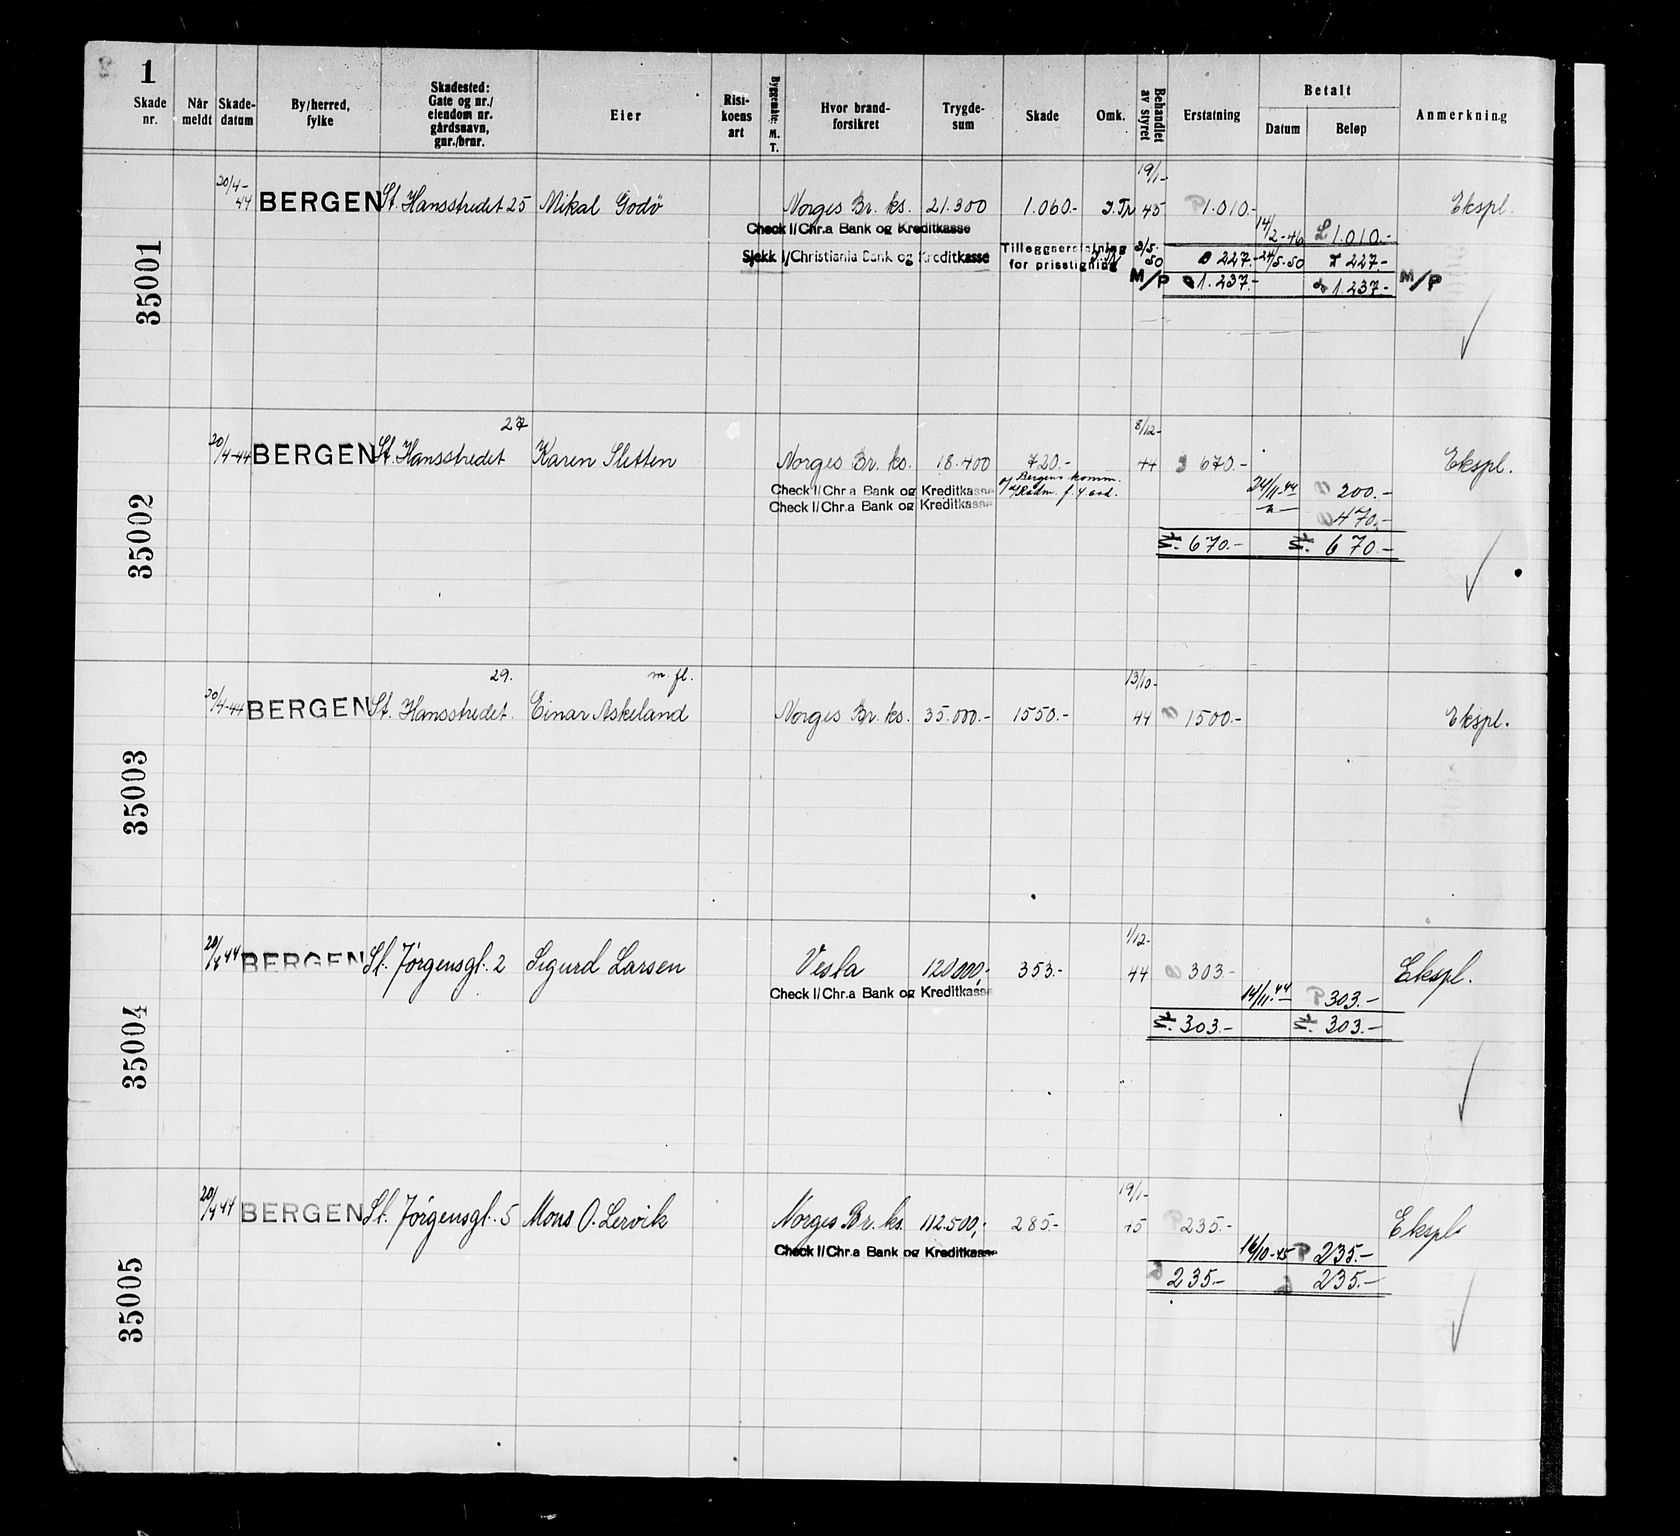 1
Skade nr.
Når meldt
Skade-datum
By/herred, fylke
Skadested: Gate og nr./ eiendom nr. gårdsnavn, gnr./brnr.
Eier
Risi-koens art
Byggemåte: M. T.
Hvor brand-forsikret
Trygde-sum
Skade
Omk.
Behandlet av styret
Erstatning
Betalt
Datum
Beløp
Anmerkning
35001
20/4-44 BERGEN St. Hansstredet 25 Mikal Godø Norges Br. ks. 21.300 1.060.- 19/1-45 1.010.- Ekspl.
Check I/Chr.a Bank og Kreditkasse 14/2-46 1.010.-
Sjekk I/Christiania Bank og Kreditkasse Tilleggserstatning for prisstigning 3/5-50 227.- 24/5-50 227.-
M/P 1.237.- 1.237.- M/P
35002
20/4-44 BERGEN St. Hansstredet 27 Karen Sletten Norges Br. ks. 18.400 720.- 8/12-44 670.- Ekspl.
Check I/Chr.a Bank og Kreditkasse Bergens komm. 24/11-44 200.-
Check I/Chr.a Bank og Kreditkasse -"- 470.-
670.- 670.-
35003
20/4-44 BERGEN St. Hansstredet 29. Einar Askeland m. fl. Norges Br. ks. 35.000.- 1550.- 13/10-44 1500.- Ekspl.
35004
20/4 44 BERGEN St. Jørgensgt. 2 Sigurd Larsen Vesta 120000,- 353.- 1/12-44 303- Ekspl.
Check I/Chr.a Bank og Kreditkasse 14/11-44 P 303.-
303.- 303.-
35005
20/4 44 BERGEN St. Jørgensgt. 5 Mons O. Lervik Norges Br. ks. 112.500,- 285- 19/1-45 235.- Ekspl.
Check I/Chr.a Bank og Kreditkasse 16/10-45 P 235.-
235.- 235.-